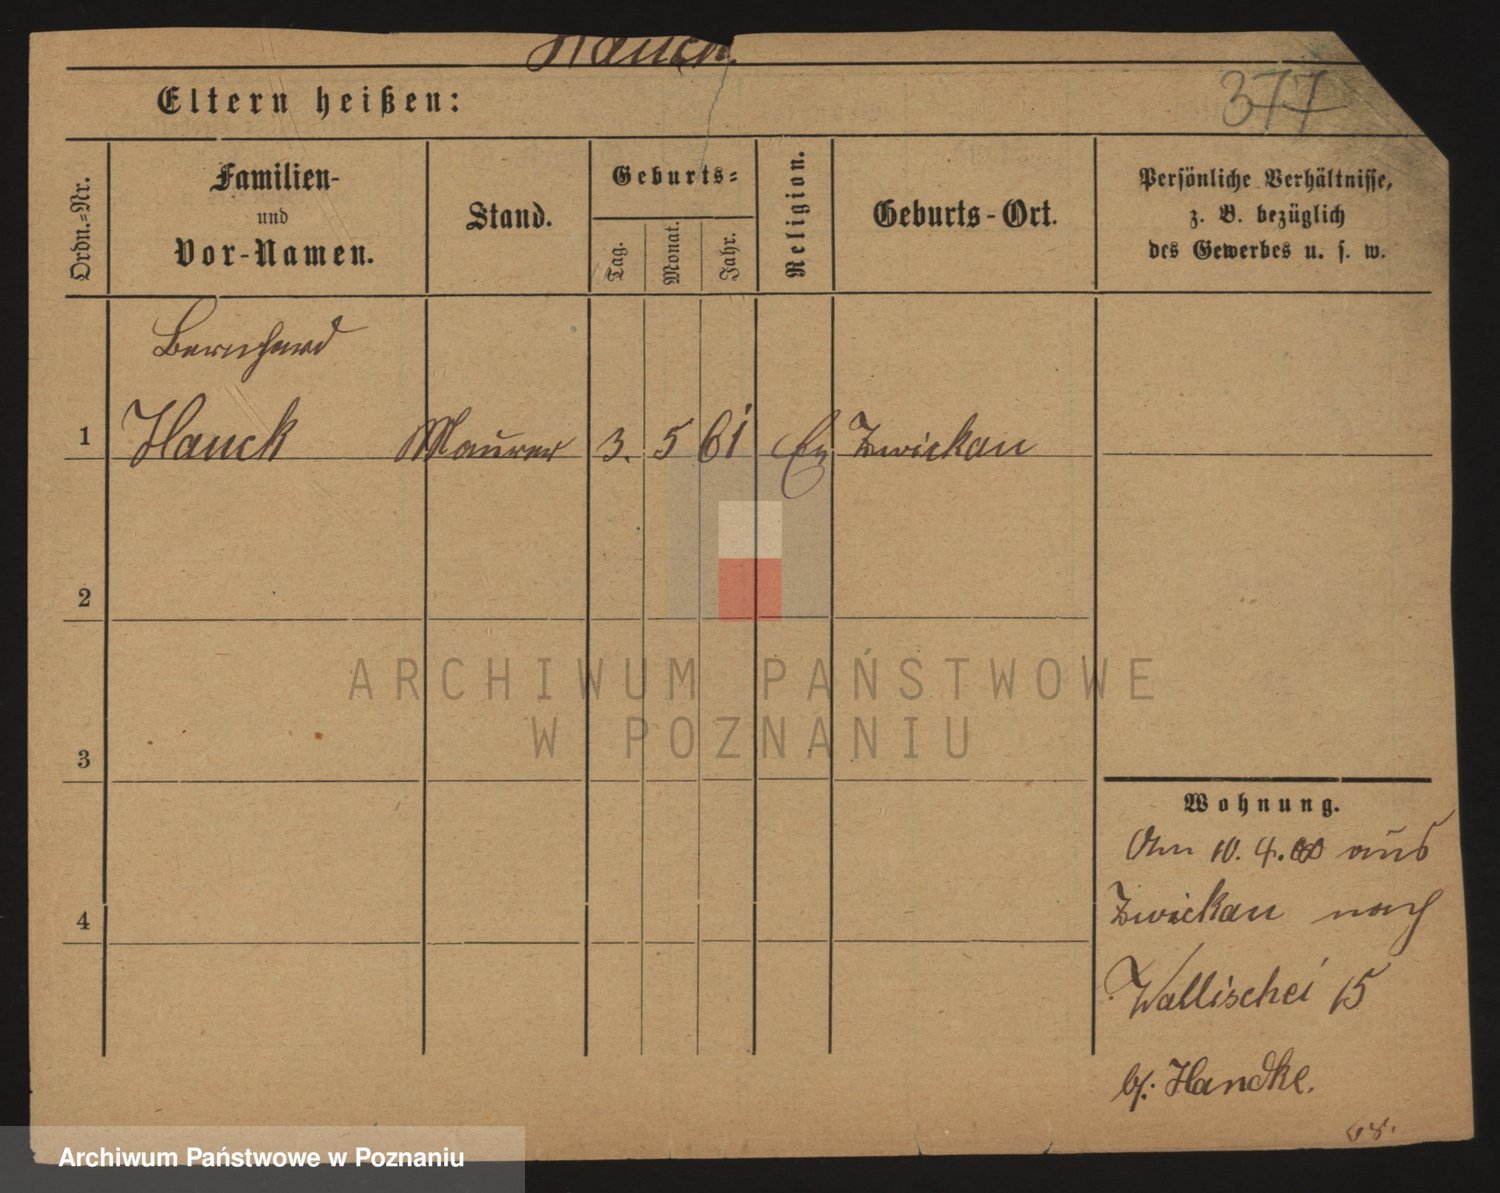 Hauck.
377
Eltern heißen:
Ordn.=Nr.
Familien-
und
Vor-Namen.
Stand.
Geburts=
Tag.
Monat.
Jahr.
Religion.
Geburts-Ort.
Persönliche Verhältnisse,
z. B. bezüglich
des Gewerbes u. s. w.
Bernhard
1 Hauck Maurer 3. 5 61 Ev Zwickau
2
ARCHIWUM PAŃSTWOWE
W POZNANIU
3
4
Wohnung.
Am 10. 4. 00 aus
Zwickau nach
Wallischei 15
bf. Handke.
Archiwum Państwowe w Poznaniu